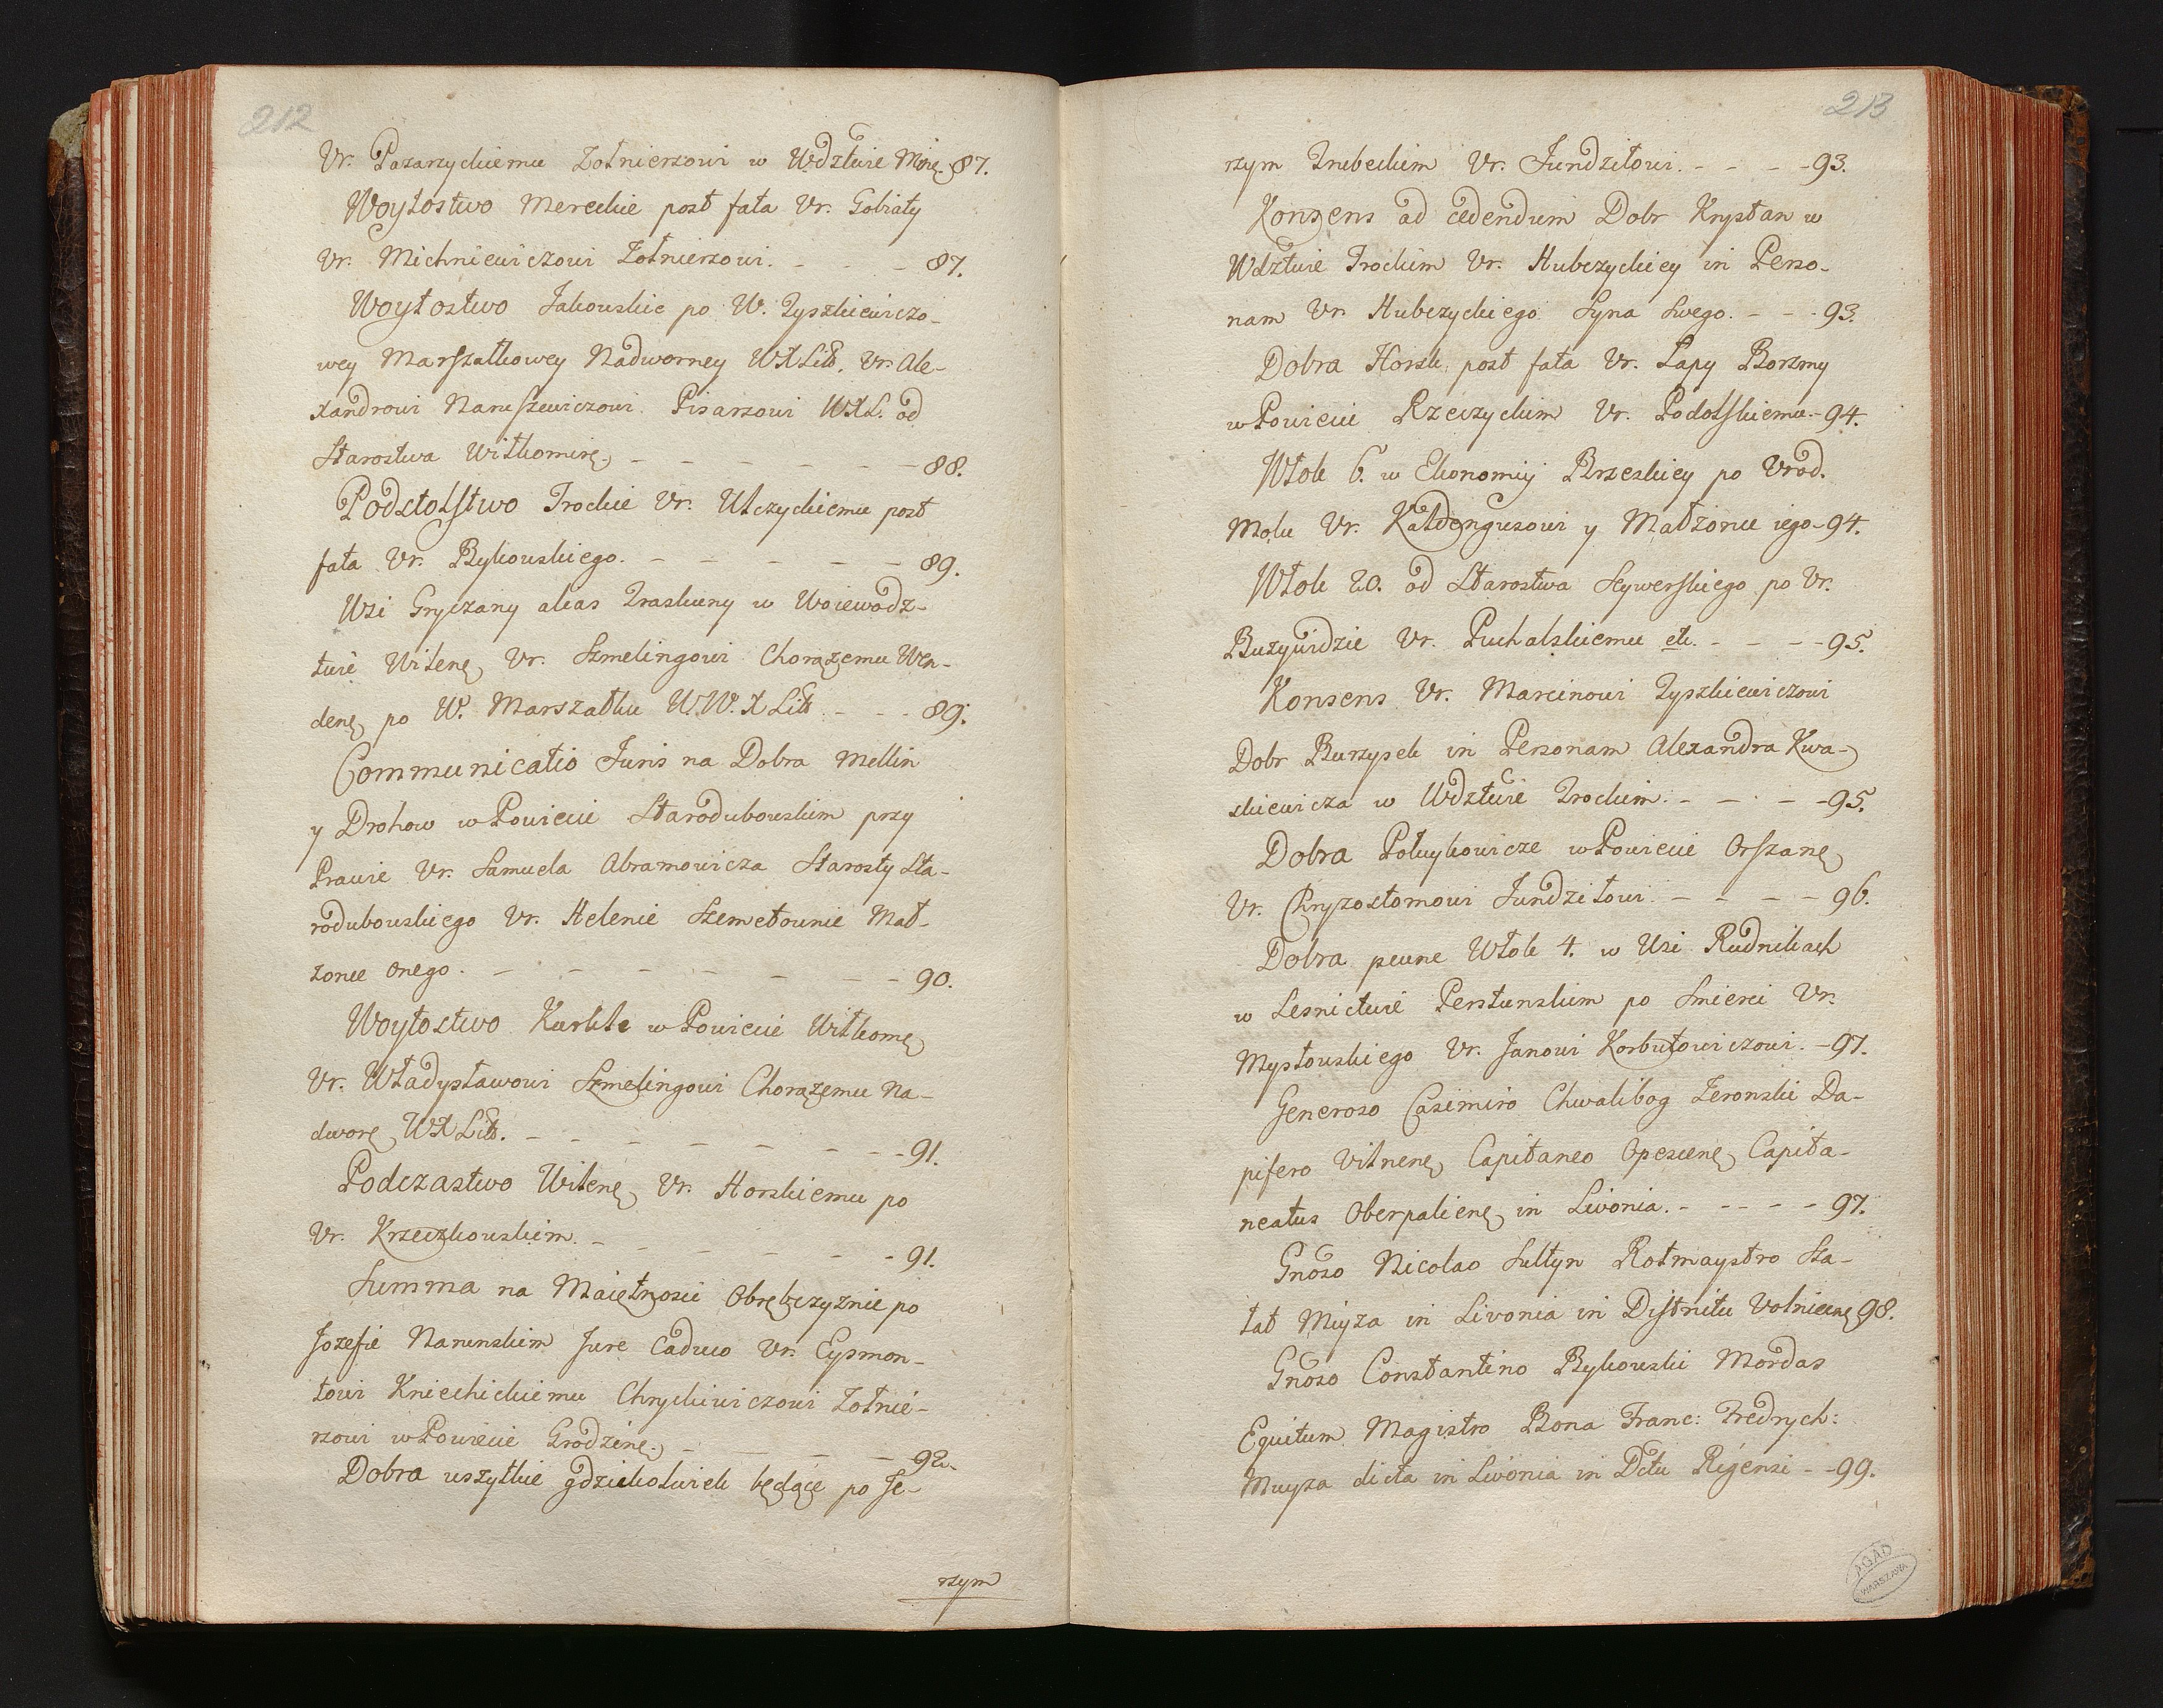 212
Ur. Pozarzyckiemu Zołnierzowi w Wdztwie Mińę. 87.
Woytostwo Mereckie post fata Ur. Gobiaty
Ur. Michniewiczowi Zołnierzowi. - - - 87.
Woytostwo Jakowskie po W. Tyszkiewiczo-
wey Marszałkowey Nadworney WXLitt. Ur. Ale-
xandrowi Naruszewiczowi Pisarzowi WXL. od
Starostwa Wiłkomirę. - - - - - - 88.
Podstolstwo Trockie Ur. Ulczyckiemu post
fata Ur. Bykowskiego. - - - - - 89.
Wsi Gryczany alias Traskuny w Woiewodz-
twie Wilenę Ur. Szmelingowi Chorążemu Wen-
denę po W. Marszałku W.W.X Litt - - - 89.
Communicatio Juris na Dobra Mellin
y Drohow w Powiecie Starodubowskim przy
Prawie Ur. Samuela Abramowicza Starosty Sta-
rodubowskiego Ur. Helenie Szemetownie Mał-
zonce Onego. - - - - - - - 90.
Woytostwo Kurkle w Powiecie Wiłkomę
Ur. Władysławowi Szmelingowi Chorążemu Na-
dworę WXLitt. - - - - - - - 91.
Podczastwo Wilenę Ur. Horskiemu po
Ur. Krzeczkowskim. - - - - - - 91.
Summa na Maiętnosci Obrębszyznie po
Jozefie Narunskim Jure Caduco Ur. Eysmon-
towi Kniechickiemu Chryckiewiczowi Zołnie-
rzowi w Powiecie Grodzinę. - - - - 92.
Dobra wszytkie gdziekolwiek będące po Je-
rzym
213
rzym Trubeckim Ur. Jundziłowi. - - - 93.
Konsens ad cedendum Dobr Krysztan w
Wdztwie Trockim Ur. Hubczyckiey in Perso-
nam Ur Hubczyckiego Syna Swego. - - - 93.
Dobra Horsk post fata Ur. Łapy Borzmy
w Powiecie Rzeczyckim Ur. Podolskiemu. - 94.
Włok 6. w Ekonomiy Brzeskiey po Urod.
Molu Ur. Kaldengusowi y Małzonce iego - 94.
Włok 20. od Starostwa Seywerskiego po Ur.
Buzyurdzie Ur. Puchalskiemu etc. - - - - 95.
Konsens Ur. Marcinowi Tyszkiewiczowi
Dobr Burzysek in Personam Alexandra Kwa-
skiewicza w Wdztwie Trockim. - - - - 95.
Dobra Połuykowicze w Powiecie Orszanę
Ur. Chryzostomowi Jundziłowi. - - - - 96.
Dobra pewne Włok 4. w Wsi Rudnikach
w Lesnictwie Perstunskim po Smierci Ur.
Mysłowskiego Ur. Janowi Korbutowiczowi. - 97.
Generoso Casimiro Chwalibog Zeronski Da-
pifero Vilnenę Capitaneo Opescenę Capita-
neatus Oberpalienę in Livonia. - - - - - 97.
Gnoso Nicolao Sultyn Rotmaystro Sta-
tat Miyza in Livonia in Districtu Volniecenę 98.
Gnoso Constantino Bykowski Mordas
Equitum Magistro Bona Franc: Fredrych:
Muyza dicta in Livonia in Dctu Rigensi - - 99.
AGAD
WARSZAWA